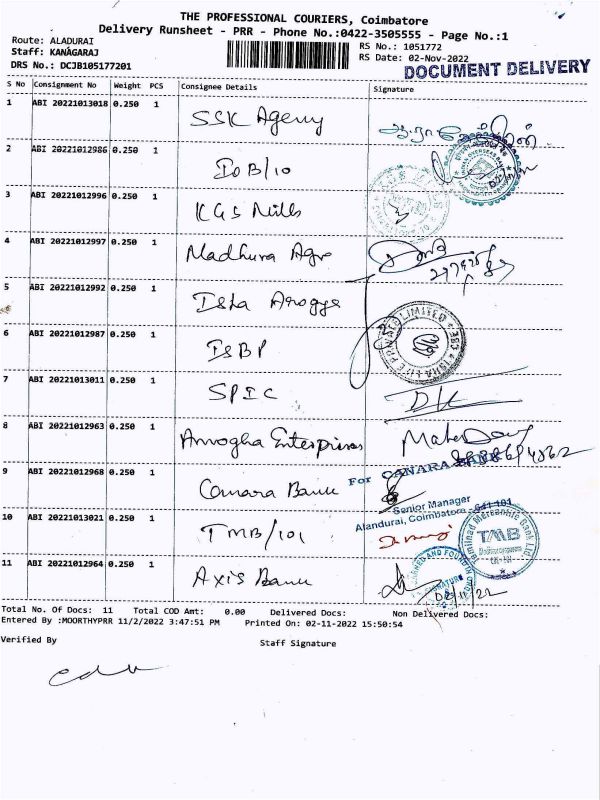 THE PROFESSIONAL COURIERS, Coimbatore
Delivery Runsheet - PRR - Phone No.:0422-3505555 - Page No.:1
Route: ALADURAI
Staff: KANAGARAJ
DRS No.: DCJB105177201
RS No.: 1051772
RS Date: 02-Nov-2022
DOCUMENT DELIVERY
S No Consignment No Weight PCS Consignee Details Signature
1 ABI 20221013018 0.250 1 SSK Agency
2 ABI 20221012986 0.250 1 IOB/10
3 ABI 20221012996 0.250 1 KGS Mills
4 ABI 20221012997 0.250 1 Madhura Agro
5 ABI 20221012992 0.250 1 Isha Arogya
6 ABI 20221012987 0.250 1 ISBP
7 ABI 20221013011 0.250 1 SPIC
8 ABI 20221012963 0.250 1 Amogha Enterprises
9 ABI 20221012968 0.250 1 Canara Bank
For CANARA BANK
Senior Manager
Alandurai, Coimbatore - 641 101
10 ABI 20221013021 0.250 1 TMB/101
Tamilnad Mercantile Bank Ltd
TMB
11 ABI 20221012964 0.250 1 Axis Bank
02/11/22
Total No. Of Docs: 11 Total COD Amt: 0.00 Delivered Docs: Non Delivered Docs:
Entered By :MOORTHYPRR 11/2/2022 3:47:51 PM Printed On: 02-11-2022 15:50:54
Verified By Staff Signature